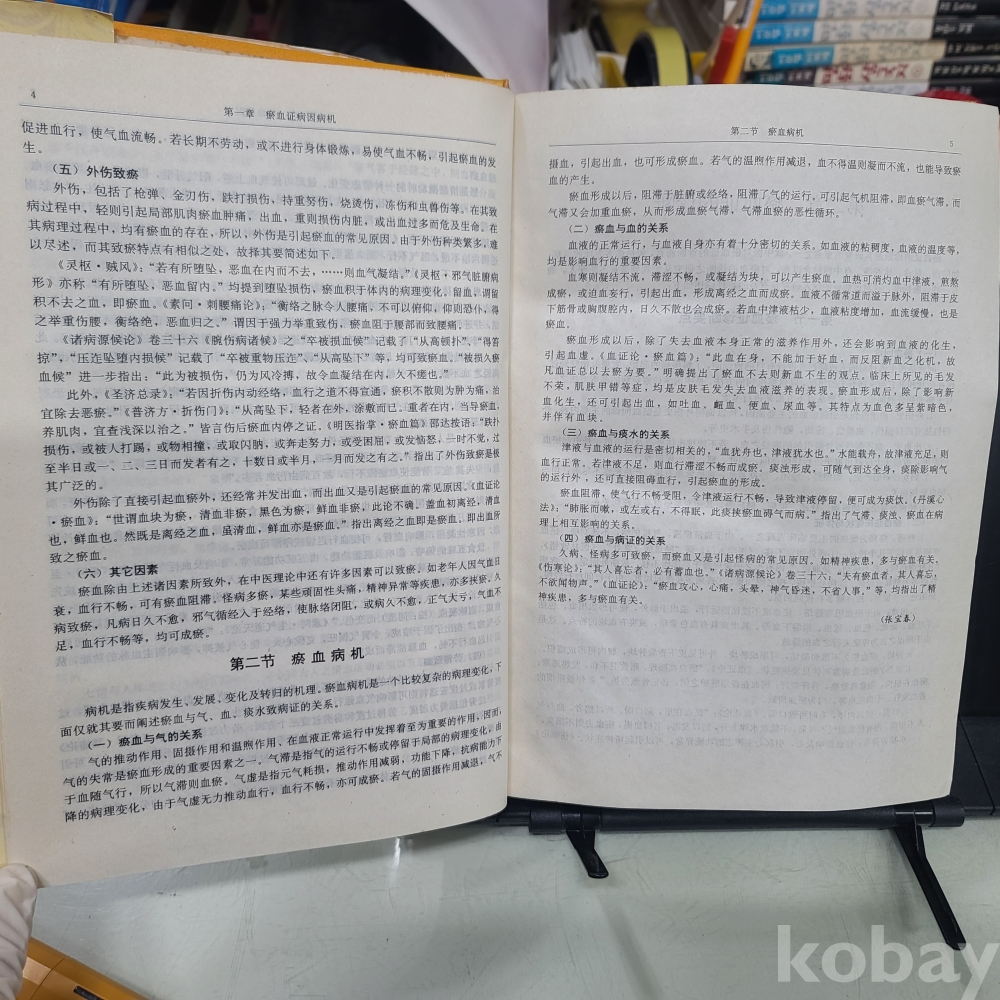 4
第一章 瘀血证病因病机
促进血行，使气血流畅。若长期不劳动，或不进行身体锻炼，易使气血不畅，引起瘀血的发
生。
（五）外伤致瘀
外伤，包括了枪弹、金刃伤，跌打损伤，持重努伤，烧烫伤，冻伤和虫兽伤等。在其致
病过程中，轻则引起局部肌肉瘀血肿痛、出血，重则损伤内脏，或出血过多而危及生命。在
其病理过程中，均有瘀血的存在，所以，外伤是引起瘀血的常见原因。由于外伤种类繁多，难
以尽述，而其致瘀特点有相似之处，故择其要简述如下。
《灵枢·贼风》：“若有所堕坠，恶血在内而不去，……则血气凝结。”《灵枢·邪气脏腑病
形》亦称“有所堕坠，恶血留内。”均提到堕坠损伤，瘀血积于体内的病理变化。留血，谓留
积不去之血，即瘀血。《素问·刺腰痛论》：“衡络之脉令人腰痛，不可以俯仰，仰则恐仆，得
之举重伤腰，衡络绝，恶血归之。”谓因于强力举重致伤，瘀血阻于腰部而致腰痛。
《诸病源候论》卷三十六《腕伤病诸候》之“卒被损血候”记载了“从高顿扑”、“得笞
掠”，“压迮坠堕内损候”记载了“卒被重物压迮”、“从高坠下”等，均可致瘀血。“被损久瘀
血候”进一步指出：“此为被损伤，仍为风冷搏，故令血凝结在内，久不瘥也。”
此外，《圣济总录》：“若因折伤内动经络，血行之道不得宣通，瘀积不散则为肿为痛，治
宜除去恶瘀。”《普济方·折伤门》：“从高坠下，轻者在外，涂敷而已。重者在内，当导瘀血，
养肌肉，宜查浅深以治之。”皆言伤后瘀血内停之证。《明医指掌·瘀血篇》邵达按语：“跌扑
损伤，或被人打踢，或物相撞，或取闪肭，或奔走努力，或受困屈，或发恼怒，一时不觉，过
至半日或一、二、三日而发者有之，十数日或半月，一月而发之有之。”指出了外伤致瘀是极
其广泛的。
外伤除了直接引起血瘀外，还经常并发出血，而出血又是引起瘀血的常见原因。《血证论
·瘀血》：“世谓血块为瘀，清血非瘀，黑色为瘀，鲜血非瘀，此论不确。盖血初离经，清血
也，鲜血也。然既是离经之血，虽清血，鲜血亦是瘀血。”指出离经之血即是瘀血，即出血所
致之瘀血。
（六）其它因素
瘀血除由上述诸因素所致外，在中医理论中还有许多因素可以致瘀。如老年人因气血日
衰，血行不畅，可有瘀血阻滞，怪病多瘀，某些顽固性头痛，精神异常等疾患，亦多挟瘀，久
病致瘀，凡病日久不愈，邪气循经入于经络，使脉络闭阻，或病久不愈，正气大亏，气血不
足，血行不畅等，均可成瘀。
第二节 瘀血病机
病机是指疾病发生、发展、变化及转归的机理。瘀血病机是一个比较复杂的病理变化，下
面仅就其要而阐述瘀血与气、血、痰水致病证的关系。
（一）瘀血与气的关系
气的推动作用、固摄作用和温煦作用、在血液正常运行中发挥着至为重要的作用，因而，
气的失常是瘀血形成的重要因素之一。气滞是指气的运行不畅或停留于局部的病理变化，由
于血随气行，所以气滞则血瘀。气虚是指元气耗损，推动作用减弱，功能下降，抗病能力下
降的病理变化，由于气虚无力推动血行，血行不畅，亦可成瘀。若气的固摄作用减退，气不
第二节 瘀血病机
5
摄血，引起出血，也可形成瘀血。若气的温煦作用减退，血不得温则凝而不流，也能导致瘀
血的产生。
瘀血形成以后，阻滞于脏腑或经络，阻滞了气的运行，可引起气机阻滞，即血瘀气滞，而
气滞又会加重血瘀，从而形成血瘀气滞，气滞血瘀的恶性循环。
（二）瘀血与血的关系
血液的正常运行，与血液自身亦有着十分密切的关系，如血液的粘稠度，血液的温度等，
均是影响血行的重要因素。
血寒则凝结不流，滞涩不畅，或凝结为块，可以产生瘀血。血热可消灼血中津液，煎熬
成瘀，或迫血妄行，引起出血，形成离经之血而成瘀。血液不循常道而溢于脉外，阻滞于皮
下筋骨或胸腹腔内，日久不散也会成瘀。若血中津液枯少，血液粘度增加，血流缓慢，也是
瘀血。
瘀血形成以后，除了失去血液本身正常的滋养作用外，还会影响到血液的化生，
引起血虚。《血证论·瘀血篇》：“此血在身，不能加于好血，而反阻新血之化机，故
凡血证总以去瘀为要。”明确提出了瘀血不去则新血不生的观点。临床上所见的毛发
不荣，肌肤甲错等症，均是皮肤毛发失去血液滋养的表现。瘀血形成后，除了影响新
血化生，还可引起出血，如吐血、衄血、便血、尿血等。其特点为血色多呈紫暗色，
并伴有血块。
（三）瘀血与痰水的关系
津液与血液的运行是密切相关的，“血犹舟也，津液犹水也。”水能载舟，故津液充足，则
血行正常。若津液不足，则血行滞涩不畅而成瘀。痰浊形成，可随气到达全身，痰除影响气
的运行外，还可直接阻碍血行，引起瘀血的形成。
瘀血阻滞，使气行不畅受阻，令津液运行不畅，导致津液停留，便可成为痰饮。《丹溪心
法》：“肺胀而嗽，或左或右，不得眠，此痰挟瘀血碍气而病。”指出了气滞、痰浊、瘀血在病
理上相互影响的关系。
（四）瘀血与病证的关系
久病、怪病多可致瘀，而瘀血又是引起怪病的常见原因。如精神疾患，多与瘀血有关。
《伤寒论》：“其人喜忘者，必有蓄血也。”《诸病源候论》卷三十六：“夫有瘀血者，其人喜忘，
不欲闻物声。”《血证论》：“瘀血攻心，心痛，头晕，神气昏迷，不省人事。”等，均指出了精
神疾患，多与瘀血有关。
（张宝春）
kobay